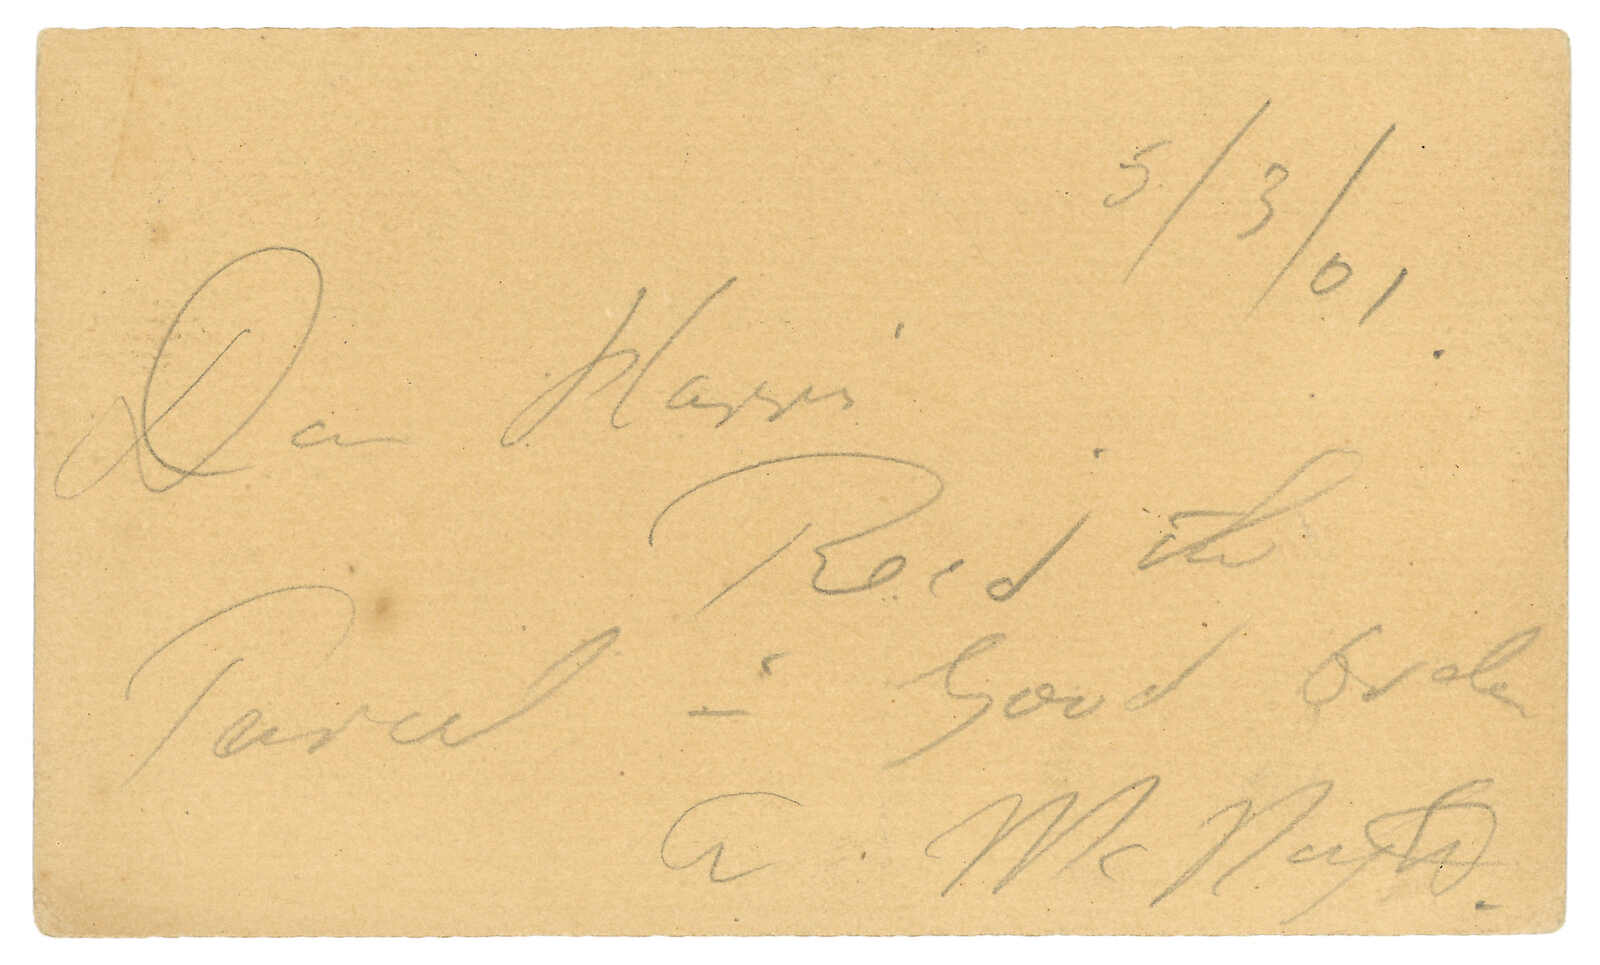 5/3/01.
Dear Harris
Recd the
Parcel in Good Order
A. McNaught.